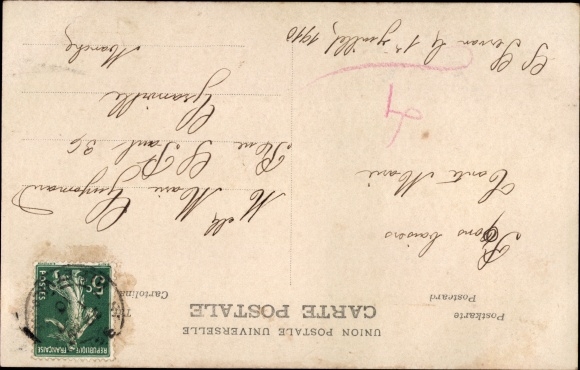 UNION POSTALE UNIVERSELLE
CARTE POSTALE
Postkarte
Postcard
Cartolina
St Servan le 1er Juillet 1910
Bons baisers
Tante Marie
4
Melle Marie Guyomard
Rue St Paul 36
Granville
Manche
REPUBLIQUE FRANÇAISE
POSTES
5c